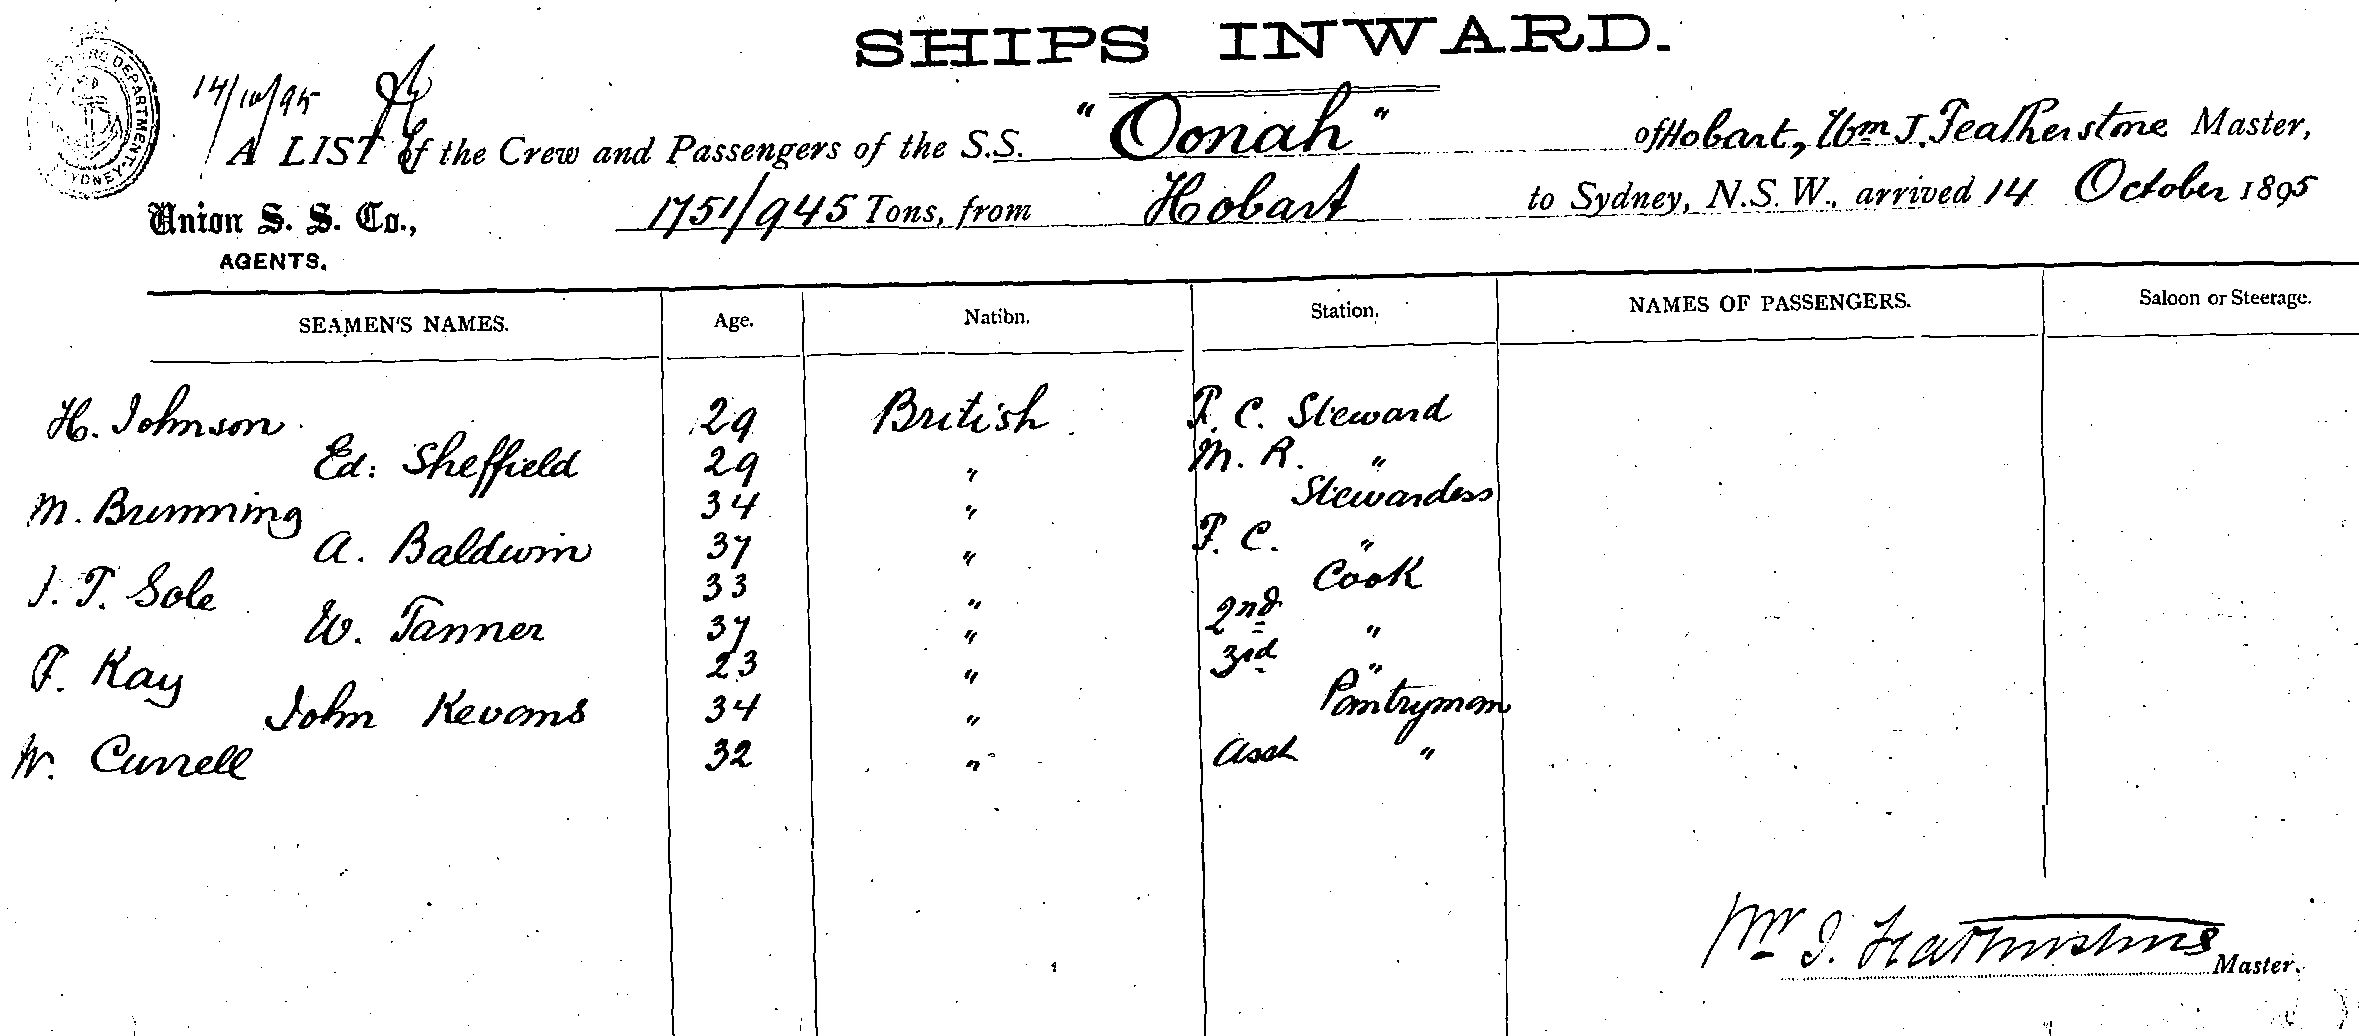 SHIPS INWARD.
14/10/95
A LIST of the Crew and Passengers of the S.S. "Oonah" of Hobart, Wm J. Featherstone Master,
Union S. S. Co., 1751/945 Tons, from Hobart to Sydney, N.S.W., arrived 14 October 1895
AGENTS.
SEAMEN'S NAMES. Age. Nation. Station. NAMES OF PASSENGERS. Saloon or Steerage.
H. Johnson 29 British F. C. Steward
Ed: Sheffield 29 " M. R. "
M. Brumming 34 " Stewardess
A. Baldwin 37 " F. C. "
J. T. Sole 33 " Cook
W. Tanner 37 " 2nd "
F. Kay 23 " 3rd "
John Kevans 34 " Pantryman
W. Currell 32 " Asst "
Wm J. Featherstone Master.